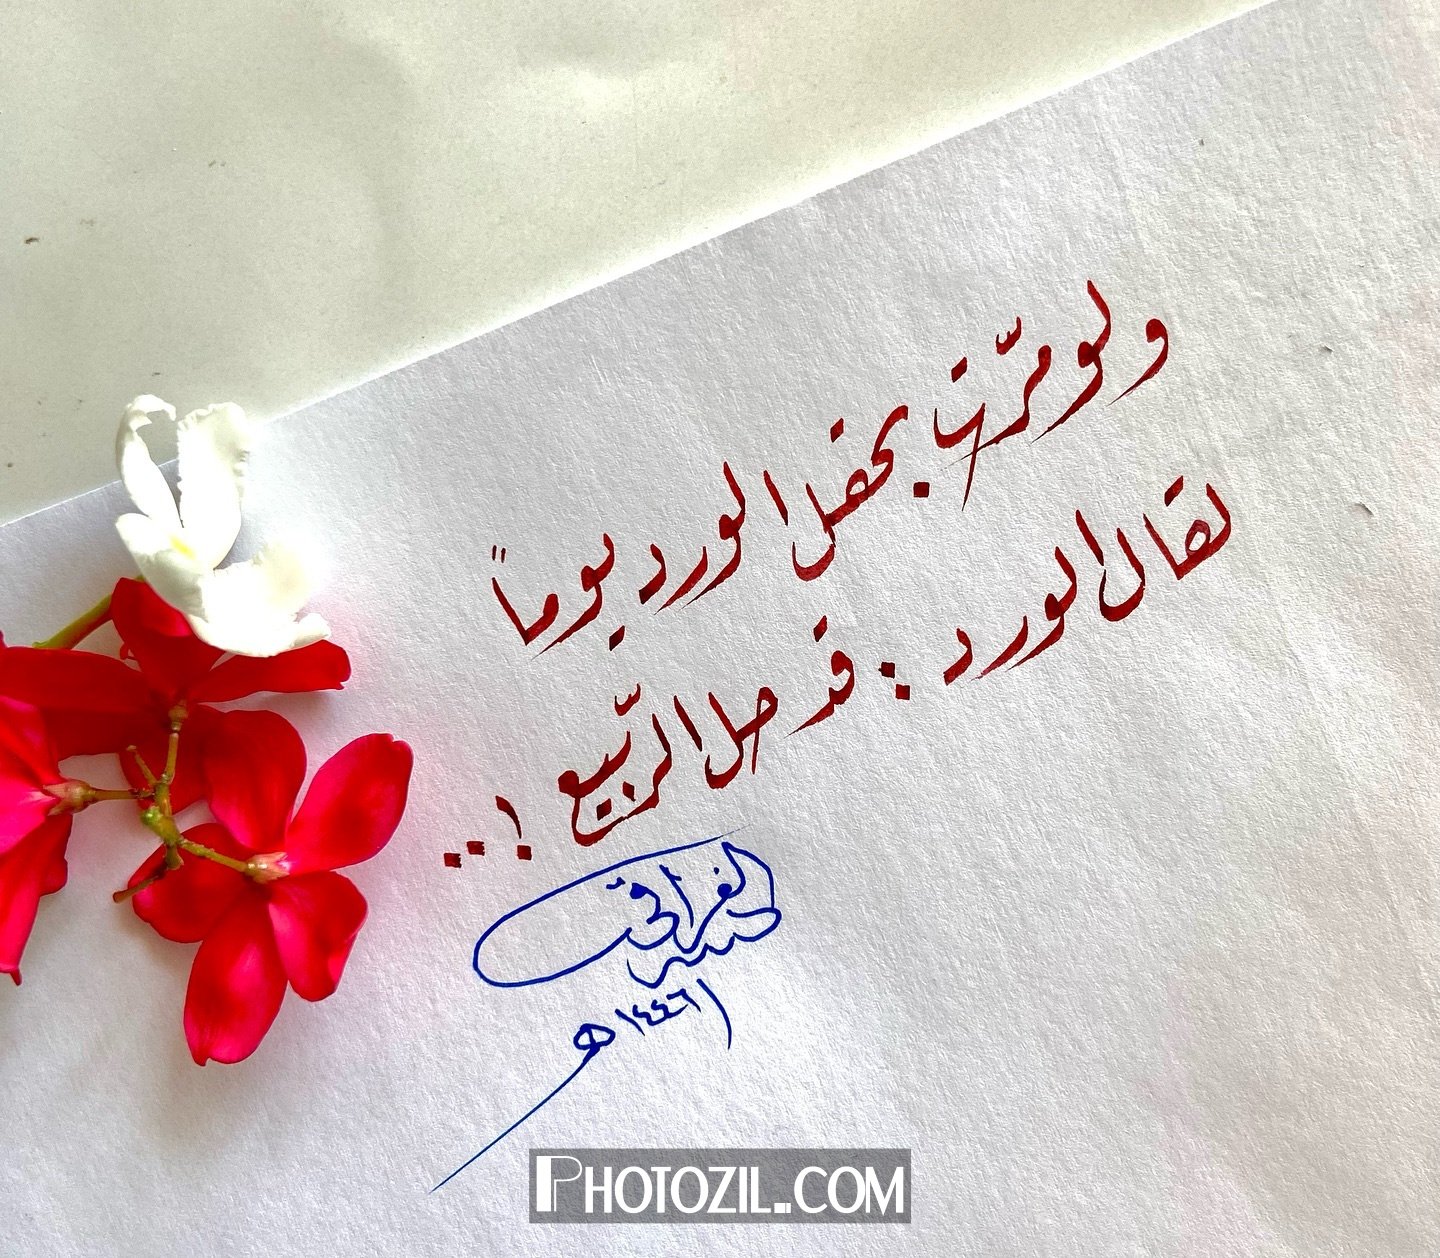 ولو مرّت بحقل الورد يوماً
لقال الورد : قد حل الربّيع !..
الفراتي
١٤٤٦هـ
PHOTOZIL.COM